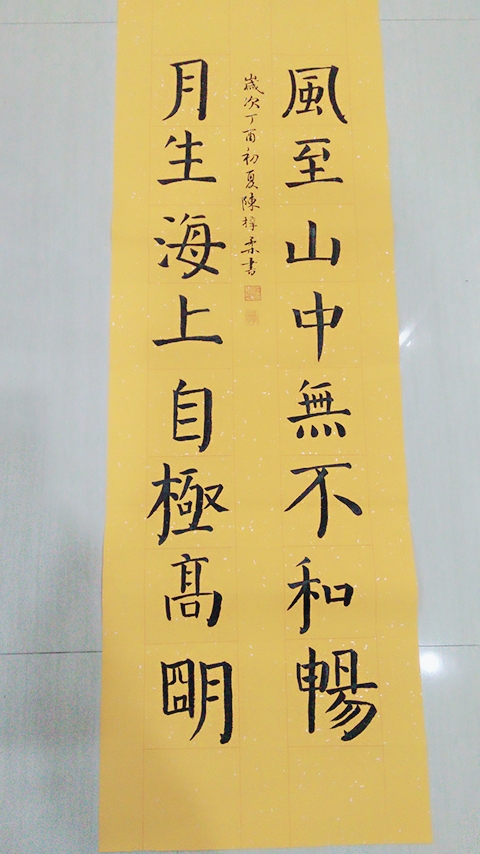 風至山中無不和暢
月生海上自極高明
歲次丁酉初夏陳梓柔書